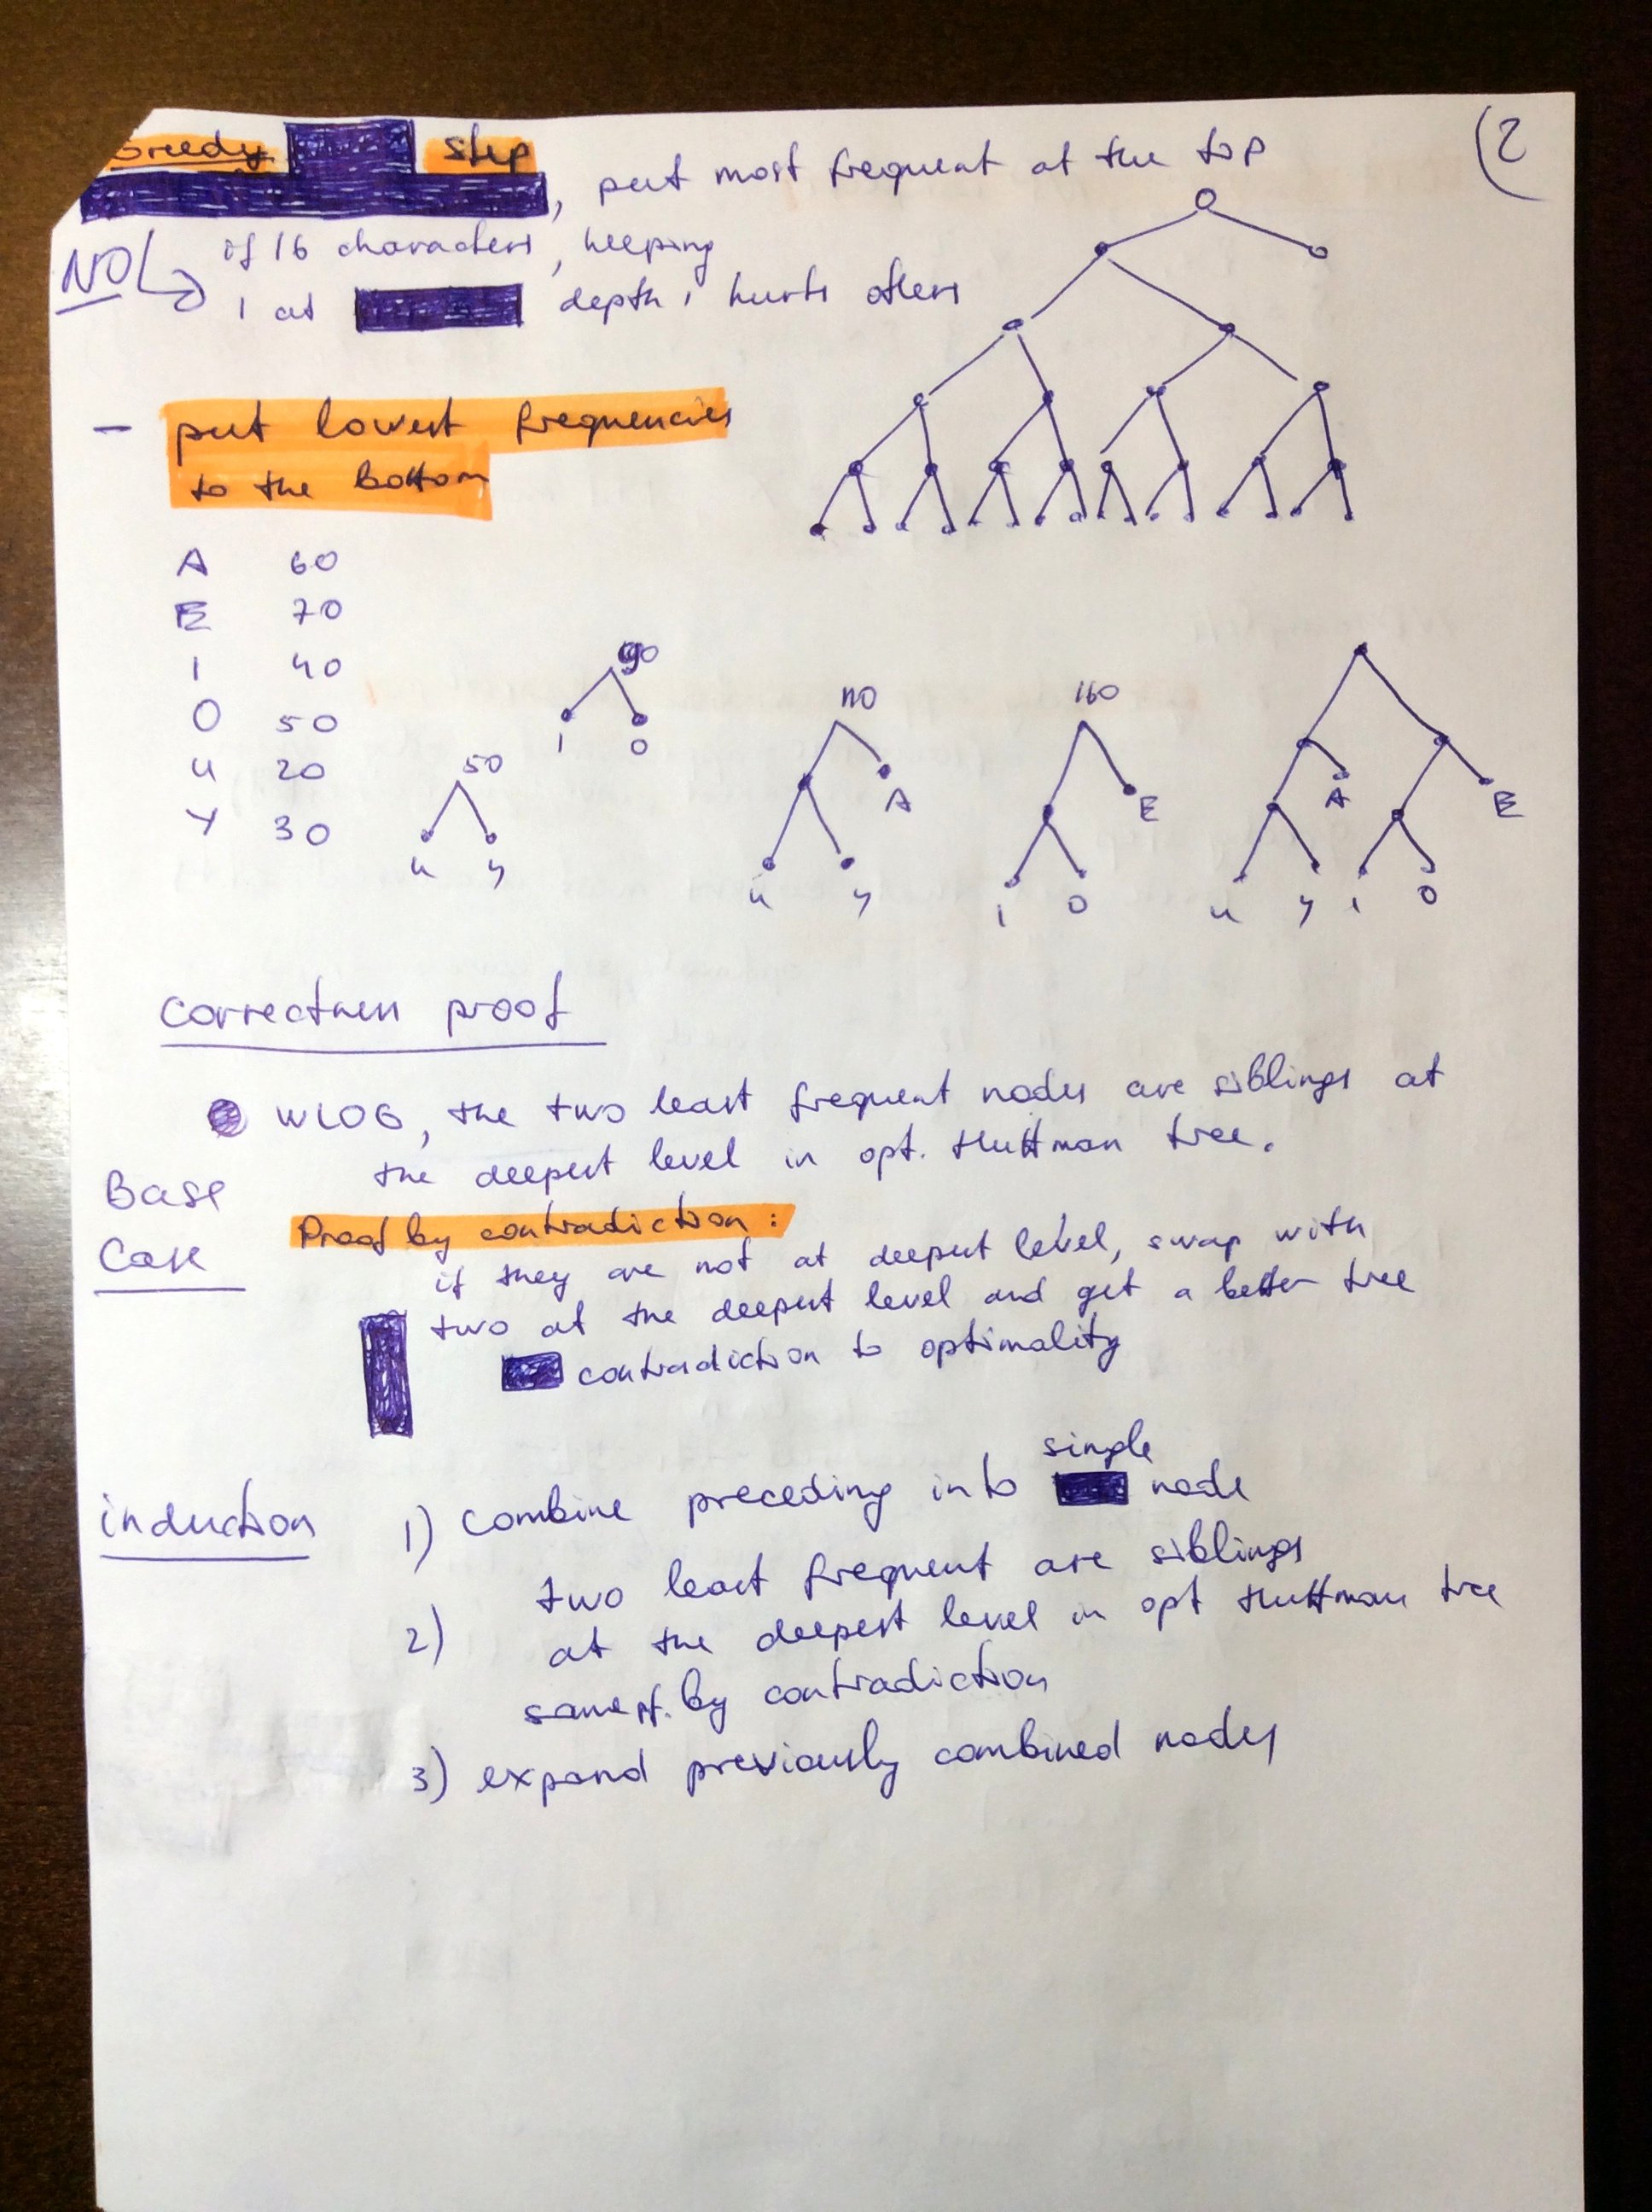 Greedy step
, put most frequent at the top
(2
NO
if 16 characters, keeping
1 at depth 1 hurts others
- put lowest frequencies
to the bottom
A 60
E 70
I 40
O 50
U 20
Y 30
50
u y
90
1 0
110
A
u y
160
E
1 0
A
E
u y 1 0
Correctness proof
WLOG, the two least frequent nodes are siblings at
the deepest level in opt. Huffman tree.
Base
Case
Proof by contradiction:
if they are not at deepest level, swap with
two at the deepest level and get a better tree
contradiction to optimality
induction
1) Combine preceding into single node
two least frequent are siblings
2) at the deepest level in opt Huffman tree
same pf. by contradiction
3) expand previously combined nodes